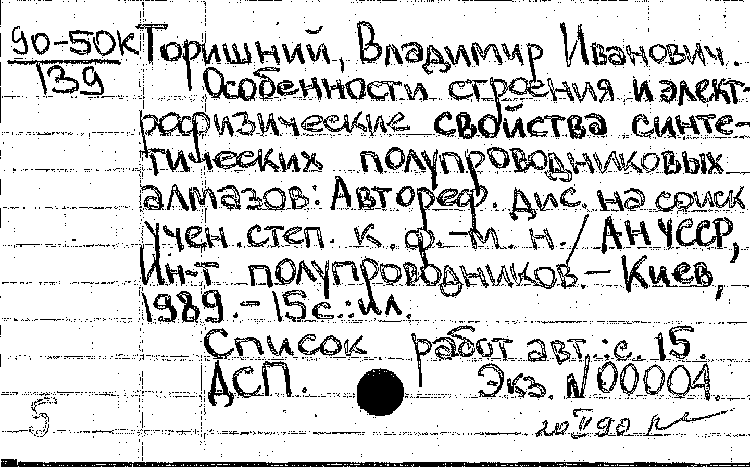 90-50к
139
Торишний, Владимир Иванович.
Особенности строения и элект-
рофизические свойства синте-
тических полупроводниковых
алмазов: Автореф. дис. на соиск
учен. степ. к. ф.-м. н. / АН УССР,
Ин-т полупроводников. – Киев,
1989. – 15 с.: ил.
Список работ авт.: с. 15.
ДСП. Экз. N 00004.
5
20 IV 90